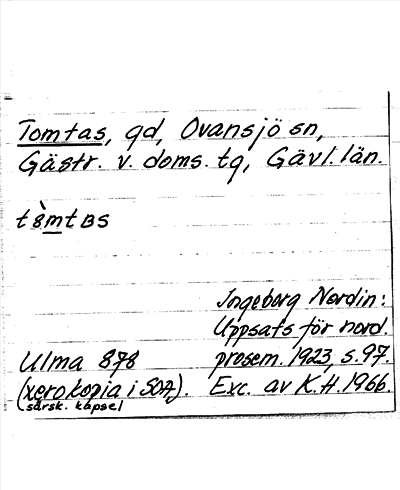 Tomtas, gd, Ovansjö sn,
Gästr. v. doms. tg, Gävl. län.
tòmtas
Ingeborg Nordin:
Uppsats för nord.
Ulma 878 prosem. 1923, s. 97.
(xerokopia i SOA). Exc. av K.H. 1966.
särsk. kapsel